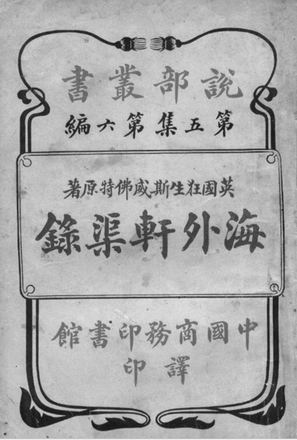 說部叢書
第五集第六編
英國狂生斯威佛特原著
海外軒渠錄
中國商務印書館
譯印